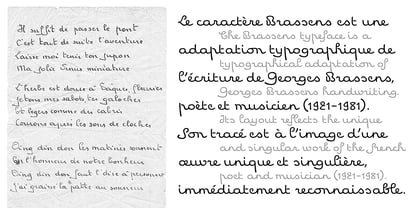 Il suffit de passer le pont
C'est tout de suite l'aventure
Laisse moi tenir ton jupon
Ma jolie
L'herbe est douce à Pâques fleuries
Jetons mes sabots, tes galoches
Et légers comme des cabris
Courons après les sons de cloches
Ding din don les matines sonnent
En l'honneur de notre bonheur
Ding din don faut l'dire à personne
J'ai graissé la patte au sonneur
Le caractère Brassens est une
The Brassens typeface is a
adaptation typographique de
typographical adaptation of
l'écriture de Georges Brassens,
Georges Brassens handwriting.
poète et musicien (1921-1981).
Its layout reflects the unique
Son tracé est à l'image d'une
and singular work of the french
œuvre unique et singulière,
poet and musician (1921-1981).
immédiatement reconnaissable.